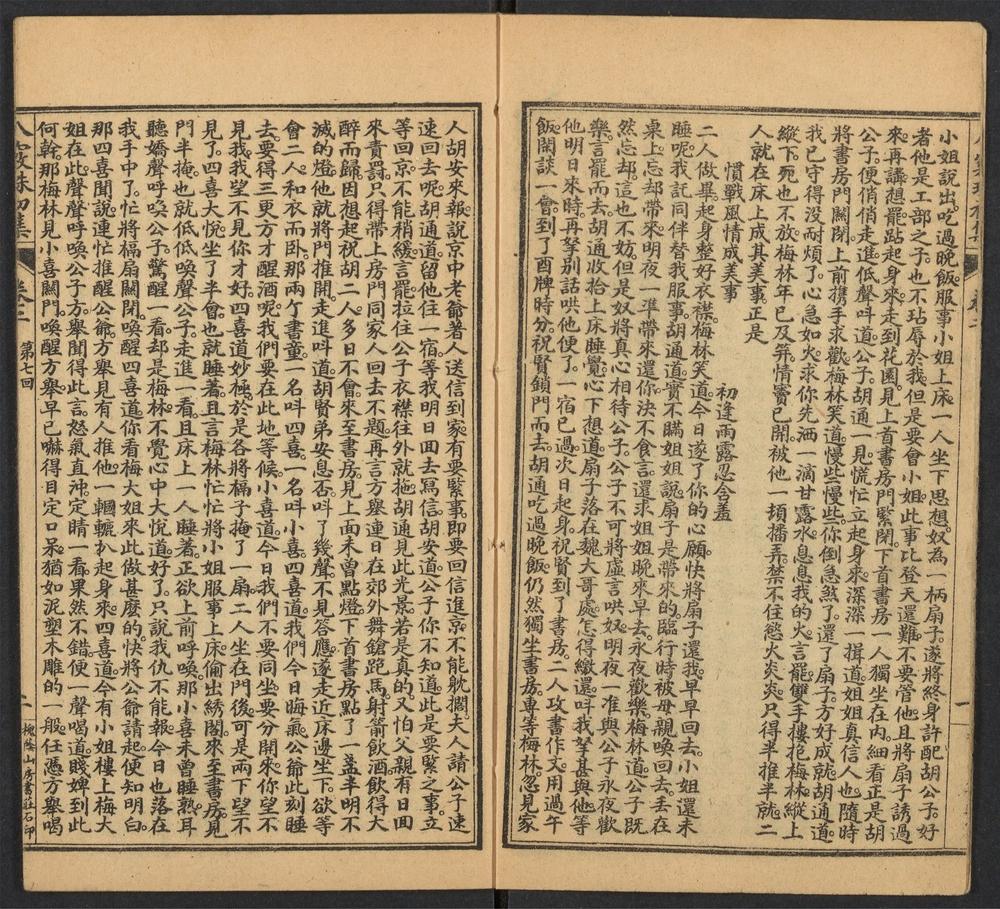 小姐說出吃過晚飯服事小姐上床一人坐下思想奴為一柄扇子遂將終身許配胡公子好
者他是工部之子也不玷辱於我但是要會小姐此事比登天還難不要管他且將扇子誘過
來再講想罷跕起身來走到花園見上首書房門緊閉下首書房一人獨坐在内細看正是胡
公子便俏俏走進低聲呌道公子胡通一見慌忙立起身來深深一揖道姐姐真信人也隨時
將書房門關閉上前携手求歡梅林笑道慢些慢些你倒急煞了還了扇子方好成就胡通道
我已守得沒耐煩了心急如火求你先洒一滴甘露水息息我的火言罷雙手摟抱梅林縱上
縱下死也不放梅林年已及笄情竇已開被他一頓播弄禁不住慾火炎炎只得半推半就二
人就在床上成其美事正是
慣戰風情成美事
初逢雨露忍含羞
二人做畢起身整好衣襟梅林笑道今日遂了你的心願快將扇子還我早早回去小姐還未
睡呢我託同伴替我服事胡通道實不瞞姐姐說扇子是帶來的臨行時被母親喚回去丢在
桌上忘却帶來明夜一準帶來還你決不食言還求姐姐晚來早去永夜歡樂梅林道公子既
然忘却這也不妨但是奴將真心相待公子公子不可將虛言哄奴明夜一准與公子永夜歡
樂言罷而去胡通收拾上床睡覺心下想道扇子落在魏大哥處怎得繳還呌我拏甚與他等
他明日來時再拏別話哄他便了一宿已過次日起身祝賢到了書房二人攻書作文用過午
飯閑談一會到了酉牌時分祝賢鎖門而去胡通吃過晚飯仍然獨坐書房專等梅林忽見家
人胡安來報說京中老爺著人送信到家有要緊事即要回信進京不能躭擱夫人請公子速
速回去呢胡通道留他住一宿等我明日回去寫信胡安道公子你不知道此是要緊之事立
等回京不能稍緩言罷拉住公子衣襟往外就拖胡通見此光景若是真的又怕父親有日回
來責罰只得帶上房門同家人回去不題再言方舉連日在郊外舞鎗跑馬射箭飲酒飲得大
醉而歸因想起祝胡二人多日不會來至書房見上面未曾點燈下首書房點了一盞半明不
滅的燈他就將門推開走進呌道胡賢弟安息否呌了幾聲不見答應遂走近床邊坐下欲等
會二人和衣而卧那兩个書童一名呌四喜一名呌小喜四喜道我們今日晦氣公爺此刻睡
去要得三更方才醒酒呢我們要在此地等候小喜道今日我們不要同坐要分開來你望不
見我我望不見你才好四喜道妙極於是各將槅子掩了一扇二人坐在門後可是兩下望不
見了四喜大悅坐了半會也就睡著且言梅林忙忙將小姐服事上床偷出綉閣來至書房見
門半掩也就低低喚聲公子走進一看且床上一人睡著正欲上前呼喚那小喜未曾睡熟耳
聽嬌聲呼喚公子驚醒一看却是梅林不覺心中大悅道好了只說我仇不能報今日也落在
我手中了忙將槅扇關閉喚醒四喜道你看梅大姐來此做甚麽的快將公爺請起便知明白
那四喜聞說連忙推醒公爺方舉見有人推他一轂轆扒起身來四喜道今有小姐樓上梅大
姐在此聲聲呼喚公子方舉聞得此言怒氣直沖定睛一看果然不錯便一聲喝道賤婢到此
何幹那梅林見小喜關門喚醒方舉早已嚇得目定口呆猶如泥塑木雕的一般任憑方舉喝
第七回
一
二
槐蔭山房書莊石印